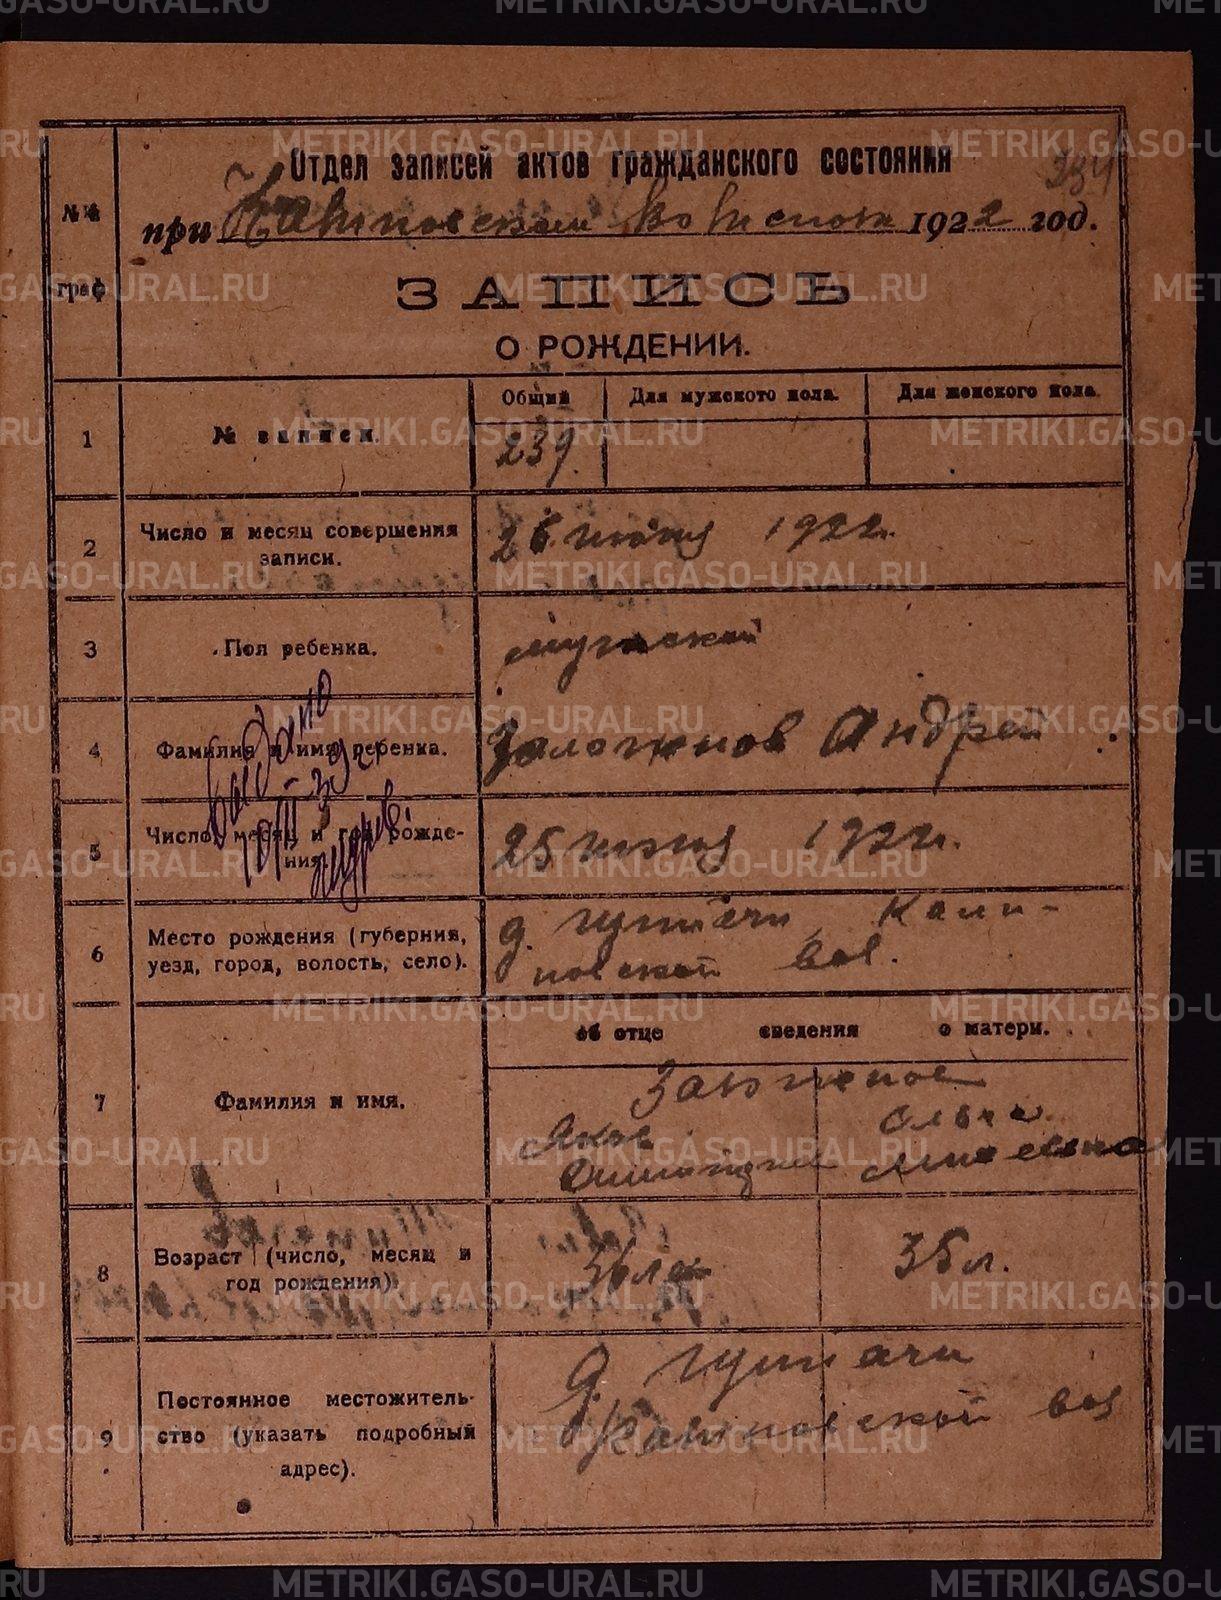 Отдел записей актов гражданского состояния
334
при Калиновском волиспол 1922 год.
№№ граф
ЗАПИСЬ
О РОЖДЕНИИ.
Общий Для мужского пола. Для женского пола.
1 № записи. 239.
2 Число и месяц совершения записи. 26 июня 1922 г.
3 Пол ребенка. мужской
4 Фамилия и имя ребенка. Заложнов Андрей
Выдано
5 Число, месяц и год рождения. 25 июня 1922 г.
6 Место рождения (губерния, уезд, город, волость, село). д. Калиновской вол.
об отце сведения о матери.
7 Фамилия и имя.
Яков Ольга
8 Возраст (число, месяц и год рождения). 36 лет 35 л.
9 Постоянное местожительство (указать подробный адрес). д.
Калиновской вол
METRIKI.GASO-URAL.RU